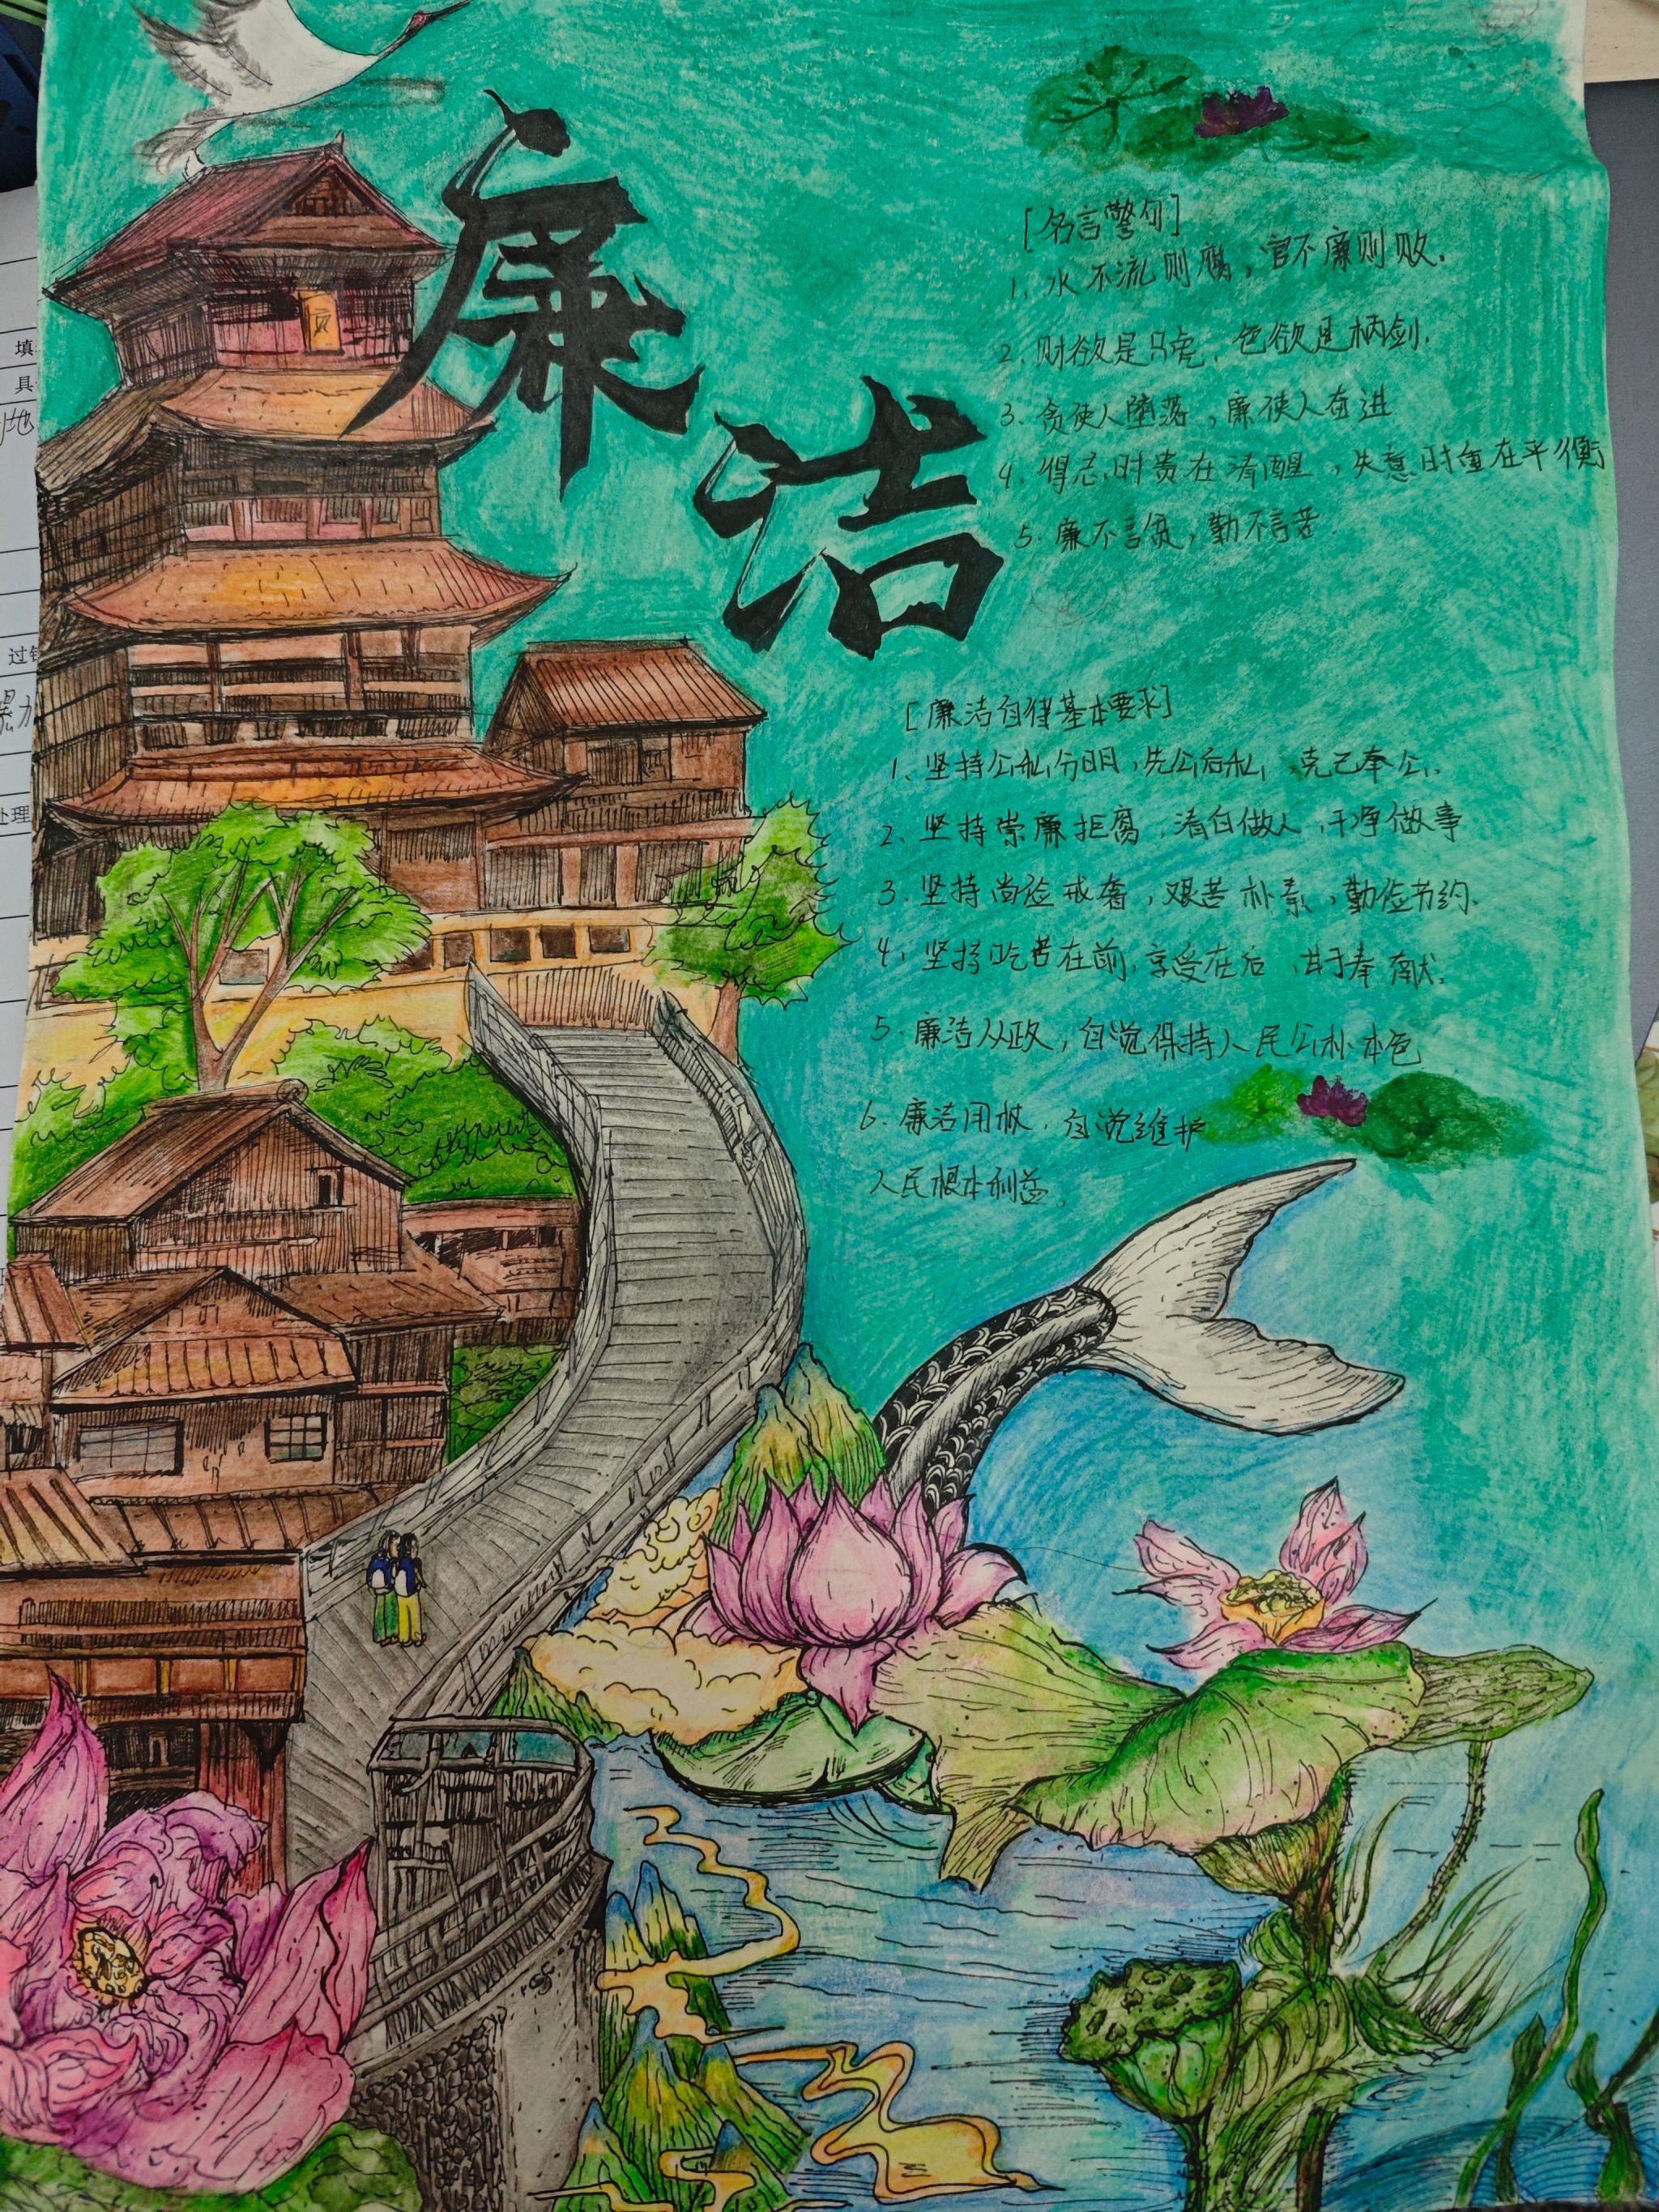 廉洁
[名言警句]
1、水不流则腐，官不廉则败.
2、财欲是只虎、色欲是柄剑.
3、贪使人堕落，廉使人奋进
4、得志时贵在清醒，失意时重在平衡
5.廉不言贫，勤不言苦.
[廉洁自律基本要求]
1、坚持公私分明，先公后私，克己奉公.
2、坚持崇廉拒腐，清白做人，干净做事
3、坚持尚俭戒奢，艰苦朴素，勤俭节约.
4、坚持吃苦在前，享受在后，甘于奉献.
5.廉洁从政，自觉保持人民公朴本色
6.廉洁用权，自觉维护
人民根本利益.
填
具
过
处理